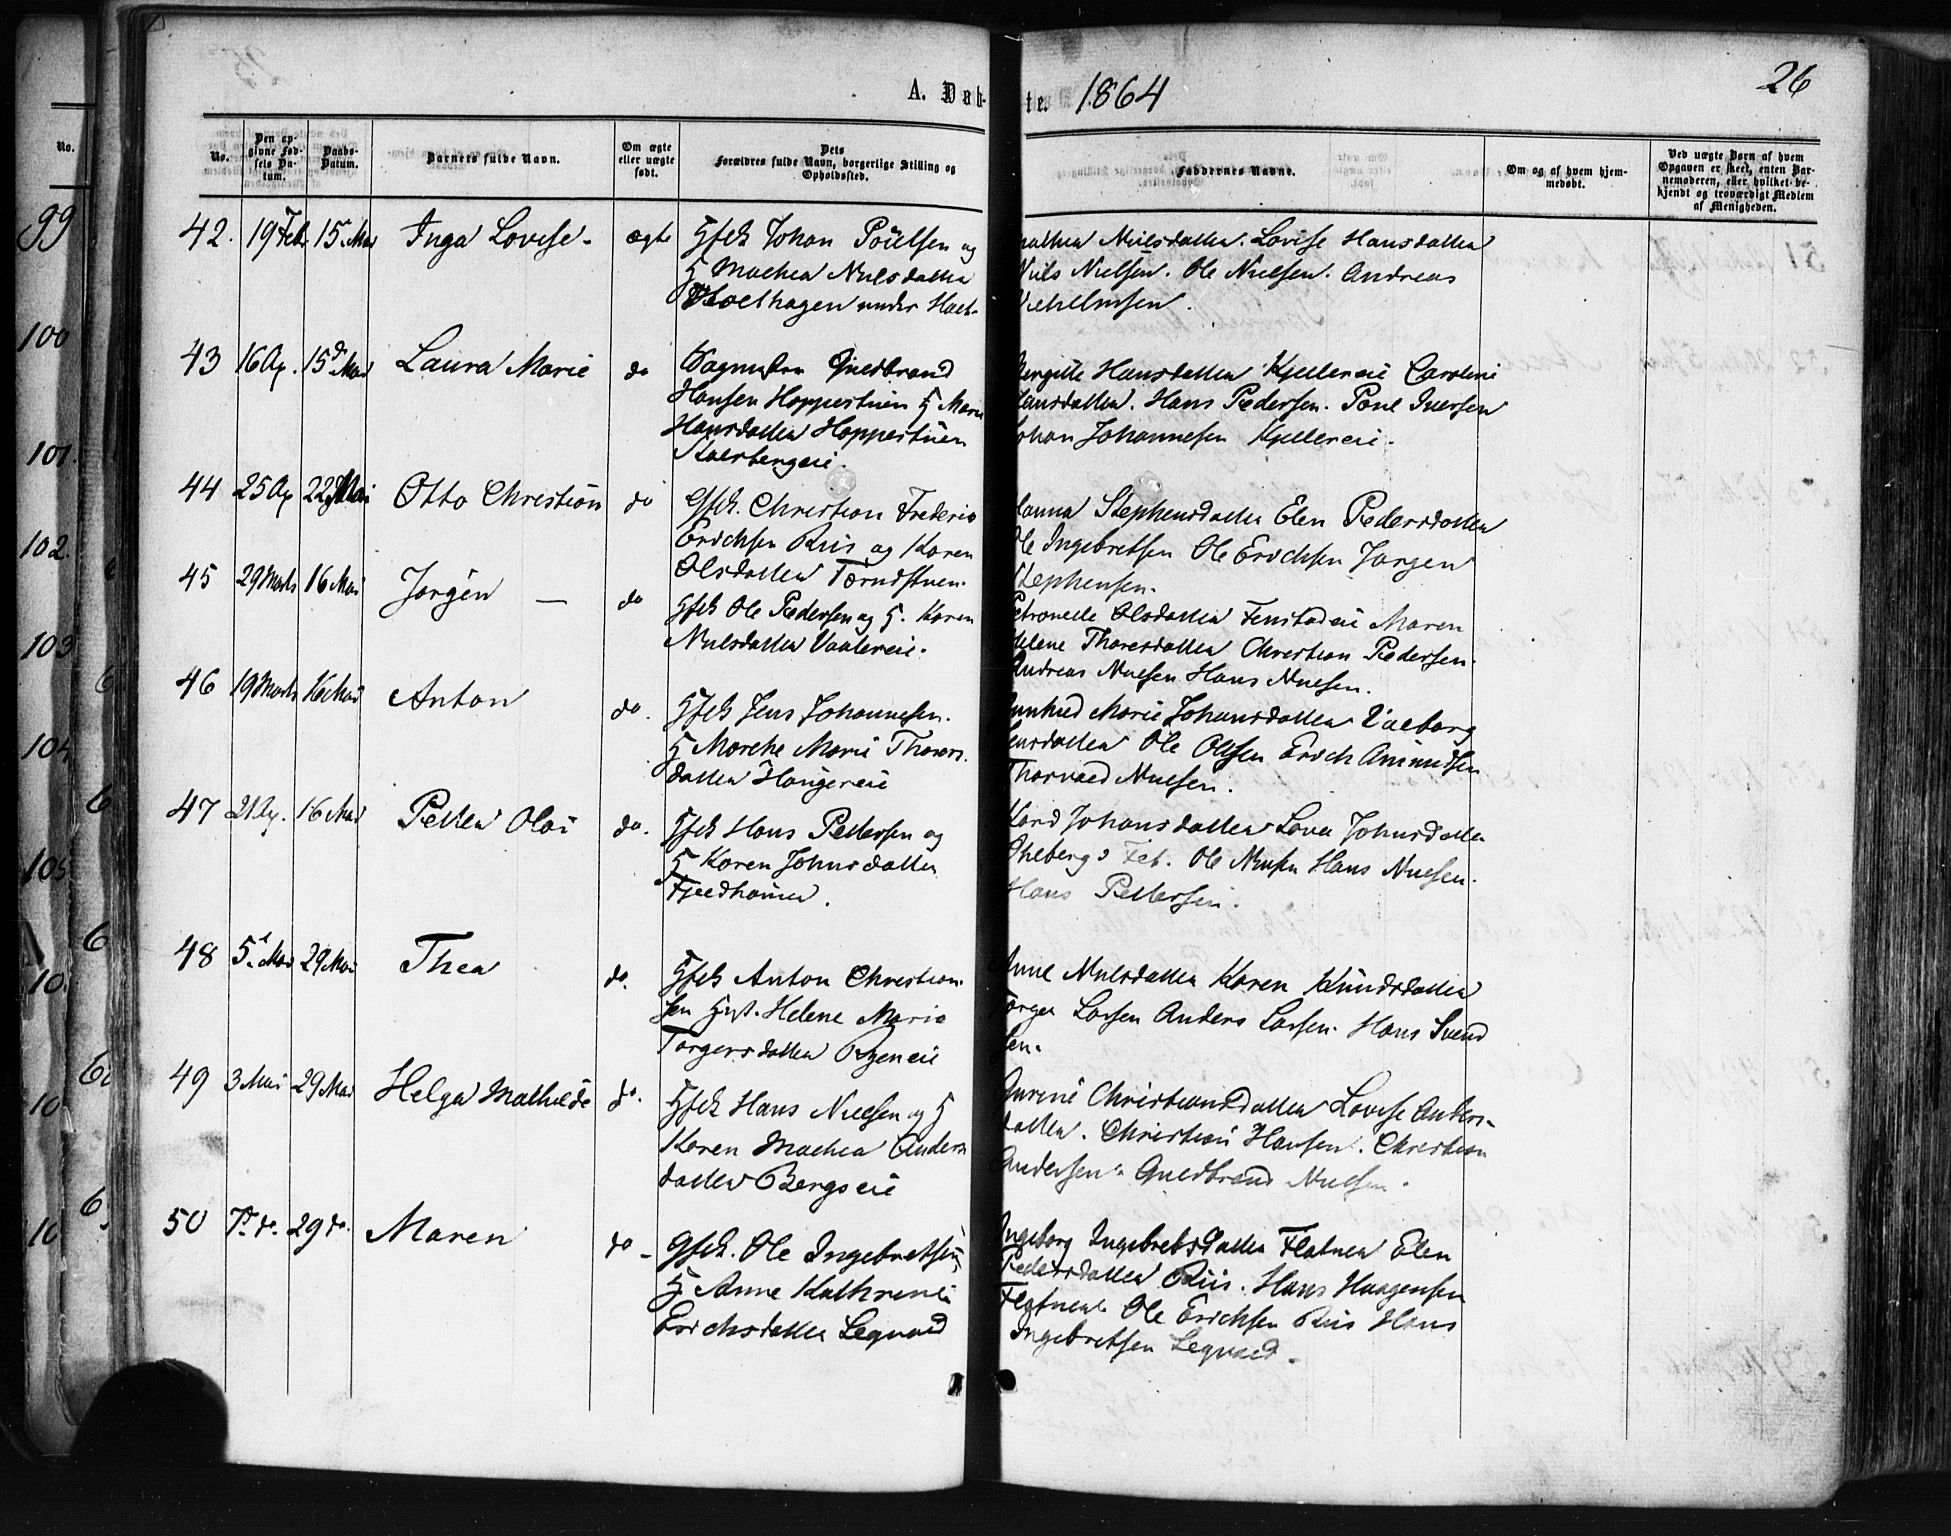 A. Døb-te. 1864
26
No.
Den op-
givne Fød-
sels Da-
tum.
Daabs-
Datum.
Barnets fulde Navn.
Om ægte
eller uægte
født.
Dets
Forældres fulde Navn, borgerlige Stilling og
Opholdssted.
Faddernes Navne.
Om og af hvem hjem-
medøbt.
Ved uægte Børn af hvem
Opgaven er skeet, enten Bar-
nemoderen, eller hvilket be-
kjendt og troværdigt Medlem
af Menigheden.
No.
99
100
101.
102.
103
104
105
42. 19 Feb 15 Mai Inga Lovise - ægte
Gfclk Johan Poulsen og
G Mathea Nilsdatter
under
Nielsdatter. Lovise Hansdatter
Niels Nielsen. Ole Nielsen. Andreas
43 16 Ap. 15de Mai Laura Marie do
Guldbrand
Hansen Hoppestuen G Marie
Hansdatter Hoppestuen
Hansdatter Caroline
Hansdatter. Hans Pedersen. Poul Iversen
Johan Johannesen
44 25 Ap 22 Mai Otto Christian do
Gfclk. Christian Frederic
Erichsen Riis og Karen
Olsdatter
Hanna Stephensdatter Elen Pedersdatter
Ole Ingebretsen Ole Erichsen Jørgen
Stephensen.
45 29 Marts 16 Mai Jørgen — do
Gfclk Ole Pedersen og G. Karen
Nielsdatter Vaalereie.
Petronelle Olsdatter Maren
Helene Thoresdatter Christian Pedersen.
Andreas Nielsen Hans Nielsen.
46 19 Marts 16 Mai Anton do.
Gfclk Jens Johannesen.
G Marthe Marie Thores
datter Haugereie
Marie Johansdatter
datter Ole Olsen Erich Amundsen
Thorvald Nielsen.
47 21 Ap. 16 Mai Petter Olai do.
Gfclk Hans Pettersen og
G Karen Johnsdatter
Kari Johansdatter Johnsdatter
Ole Hans Nielsen.
Hans Pettersen.
48 5te Mai 29 Mai Thea do.
Gfclk Anton Christian-
sen Helene Marie
Torgersdatter Ryeneie
Anne Nielsdatter Karen Knudsdatter
Torger Larsen Anders Larsen. Hans Svend
sen.
49 3 Mai 29 Mai Helga Mathilde do.
Gfclk Hans Nielsen og G
Karen Mathea Anders
datter Bergseie
Gurine Christiansdatter Lovise Anders-
datter. Christian Hansen. Christian
Andersen. Guldbrand Nielsen.
50 7de do. 29 do. Maren do -
Gfclk. Ole Ingebretsen
G Anne Kathrine
Erichsdatter Legvold
Ingeborg Ingebretsdatter Flatner Elen
Pedersdatter Riis. Hans Haagensen
Flatner. Ole Erichsen Riis Hans
Ingebretsen Legvold.